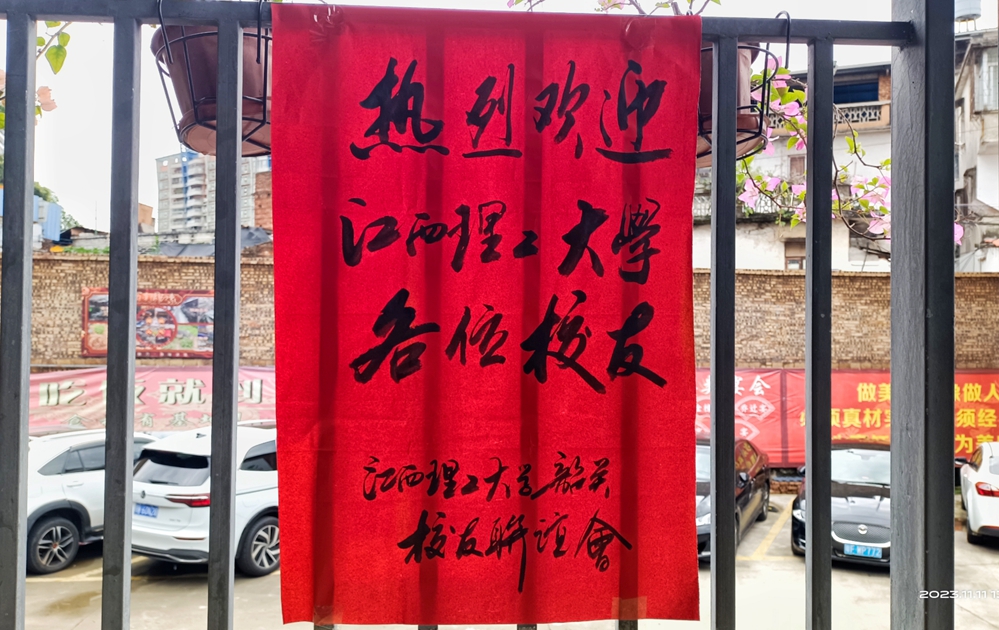 热烈欢迎
江西理工大學
各位校友
江西理工大学韶关
校友聯谊會
宴会
做美
像做人
真材
须经
为美
2023.11.11